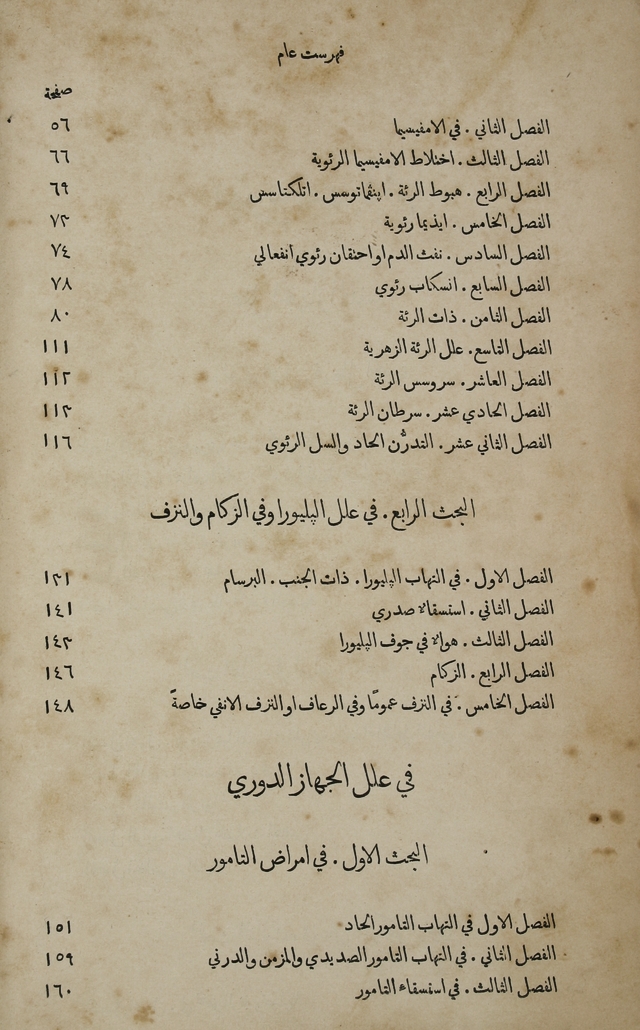 فهرست عام
صفحة
الفصل الثاني . في الامفيسيما ٥٦
الفصل الثالث . اختلاط الامفيسيما الرئوية ٦٦
الفصل الرابع . هبوط الرئة . اپنڤماتوسس . اتلكتاسس ٦٩
الفصل الخامس . ايذيما رئوية ٧٣
الفصل السادس . نفث الدم او احتقان رئوي انفعالي ٧٤
الفصل السابع . انسكاب رئوي ٧٨
الفصل الثامن . ذات الرئة ٨٠
الفصل التاسع . علل الرئة الزهرية ١١١
الفصل العاشر . سروسس الرئة ١١٢
الفصل الحادي عشر . سرطان الرئة ١١٣
الفصل الثاني عشر . التدرُّن الحاد والسل الرئوي ١١٦
البحث الرابع . في علل الپليورا وفي الزكام والنزف
الفصل الاول . في التهاب الپليورا . ذات الجنب . البرسام ١٣١
الفصل الثاني . استسقاء صدري ١٤١
الفصل الثالث . هواء في جوف الپليورا ١٤٣
الفصل الرابع . الزكام ١٤٦
الفصل الخامس . في النزف عمومًا وفي الرعاف او النزف الانفي خاصةً ١٤٨
في علل الجهاز الدوري
البحث الاول . في امراض التامور
الفصل الاول في التهاب التامور الحاد ١٥١
الفصل الثاني . في التهاب التامور الصديدي والمزمن والدرني ١٥٩
الفصل الثالث . في استسقاء التامور ١٦٠